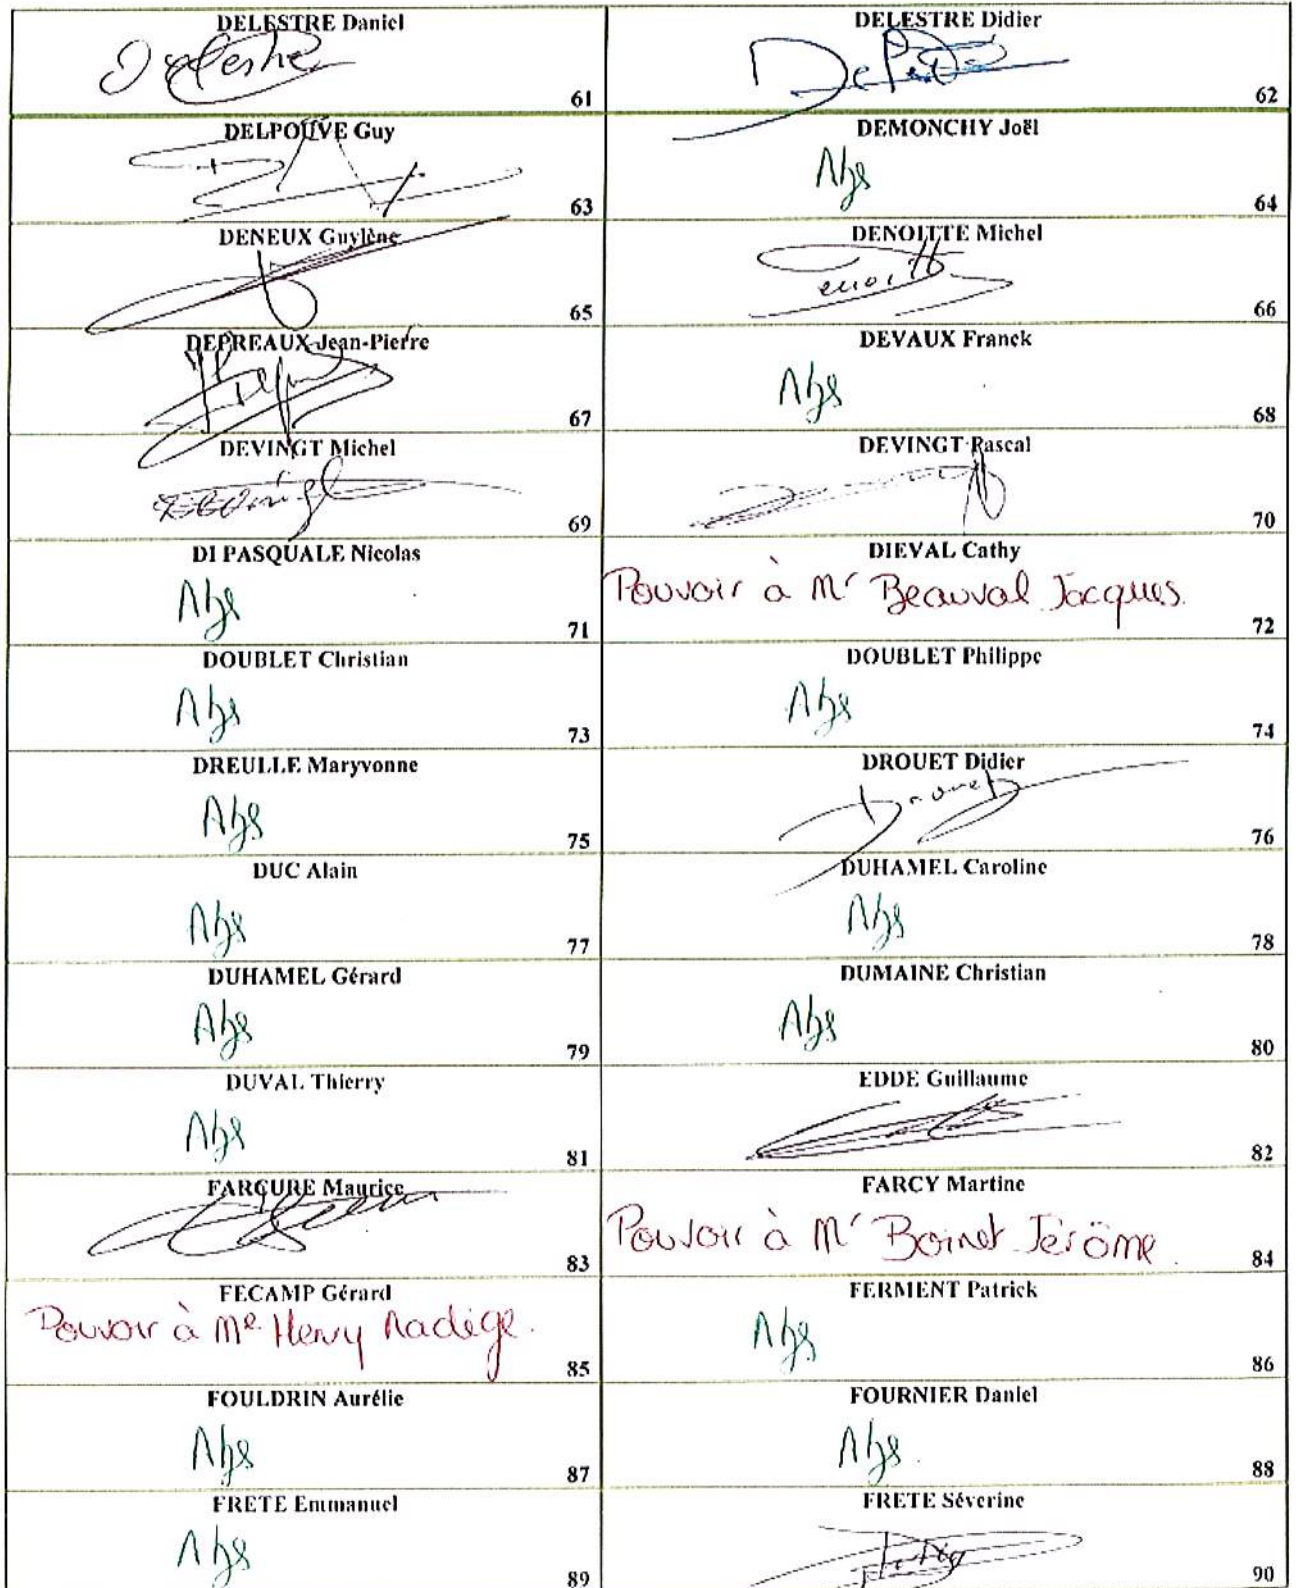 DELESTRE Daniel
Delestre
61
DELESTRE Didier
62
DELPOUVE Guy
63
DEMONCHY Joël
Abs
64
DENEUX Guylène
65
DENOITTE Michel
66
DEPREAUX Jean-Pierre
67
DEVAUX Franck
Abs
68
DEVINGT Michel
69
DEVINGT Pascal
70
DI PASQUALE Nicolas
Abs
71
DIEVAL Cathy
Pouvoir à Mr Beauval Jacques.
72
DOUBLET Christian
Abs
73
DOUBLET Philippe
Abs
74
DREULLE Maryvonne
Abs
75
DROUET Didier
Drouet
76
DUC Alain
Abs
77
DUHAMEL Caroline
Abs
78
DUHAMEL Gérard
Abs
79
DUMAINE Christian
Abs
80
DUVAL Thierry
Abs
81
EDDE Guillaume
82
FARCURE Maurice
83
FARCY Martine
Pouvoir à Mr Boinet Jérôme.
84
FECAMP Gérard
Pouvoir à Me Henry Nadège.
85
FERMENT Patrick
Abs
86
FOULDRIN Aurélie
Abs
87
FOURNIER Daniel
Abs.
88
FRETE Emmanuel
Abs
89
FRETE Séverine
90